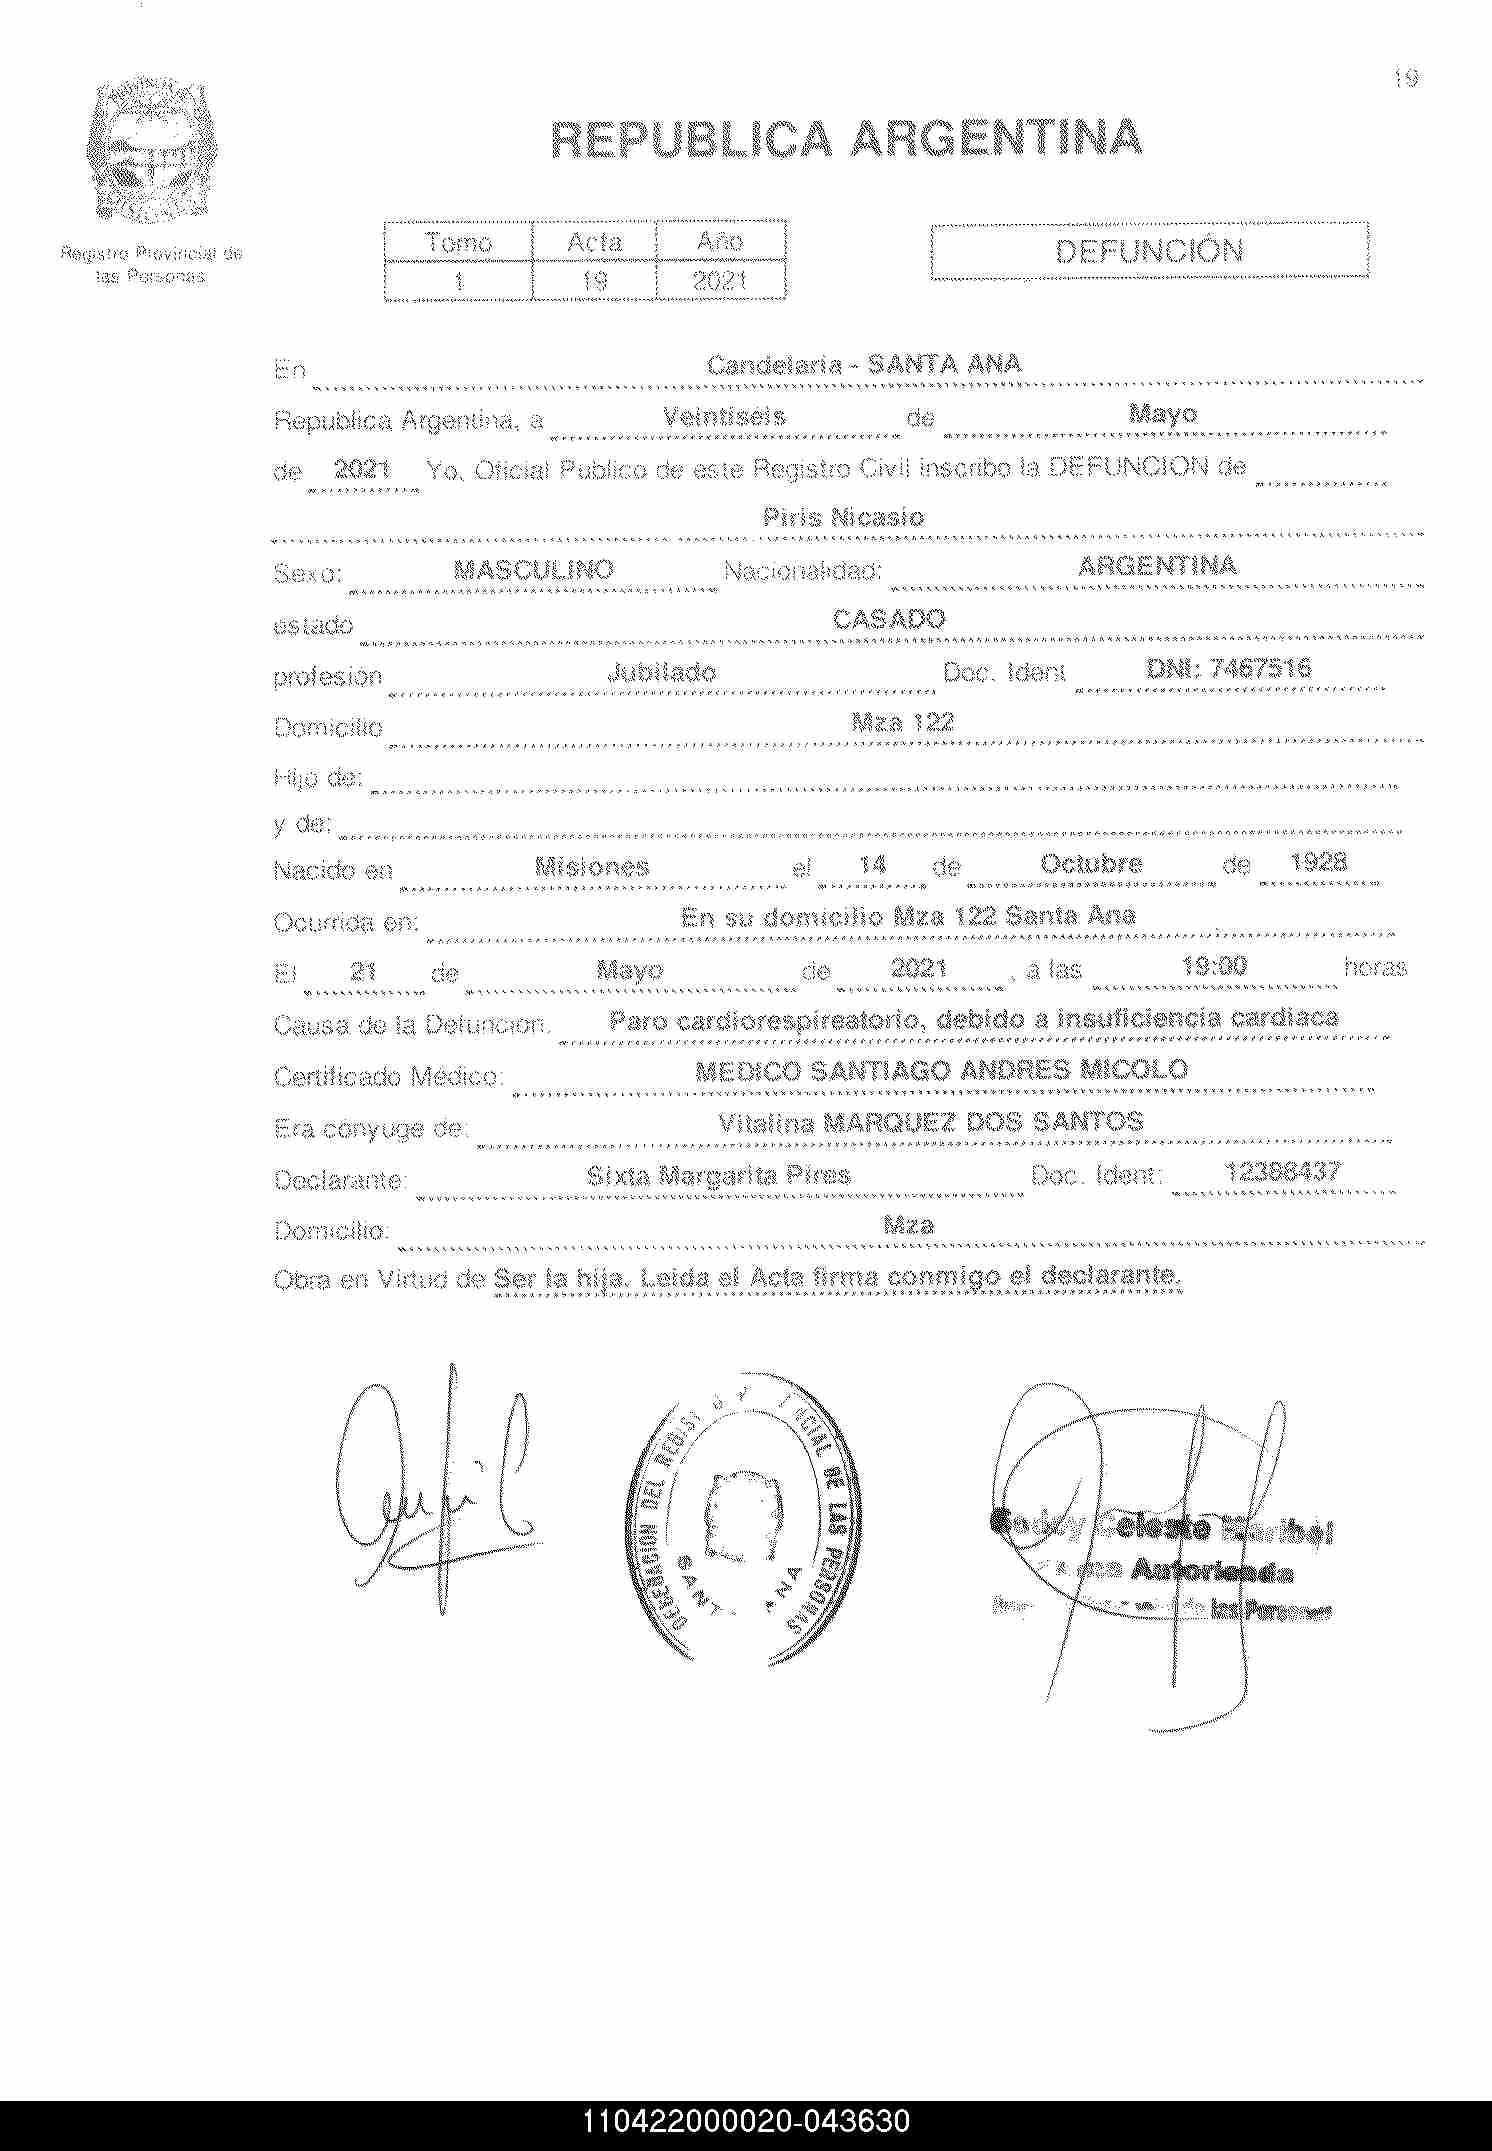 19
REPUBLICA ARGENTINA
Registro Provincial de
las Personas
Tomo Acta Año
1 19 2021
DEFUNCIÓN
En Candelaria - SANTA ANA
Republica Argentina, a Veintiseis de Mayo
de 2021 Yo, Oficial Publico de este Registro Civil inscribo la DEFUNCION de
Piris Nicasio
Sexo: MASCULINO Nacionalidad: ARGENTINA
estado CASADO
profesión Jubilado Doc. Ident DNI: 7467516
Domicilio Mza 122
Hijo de:
y de:
Nacido en Misiones el 14 de Octubre de 1928
Ocurrida en: En su domicilio Mza 122 Santa Ana
El 21 de Mayo de 2021 , a las 19:00 horas
Causa de la Defuncion. Paro cardiorespireatorio, debido a insuficiencia cardiaca
Certificado Médico: MEDICO SANTIAGO ANDRES MICOLO
Era cónyuge de: Vitalina MARQUEZ DOS SANTOS
Declarante: Sixta Margarita Pires Doc. Ident: 12398437
Domicilio: Mza
Obra en Virtud de Ser la hija. Leida el Acta firma conmigo el declarante.
DEL DE LAS PERSONAS
Godoy Celeste Maribel
Autorizada
las Personas
110422000020-043630